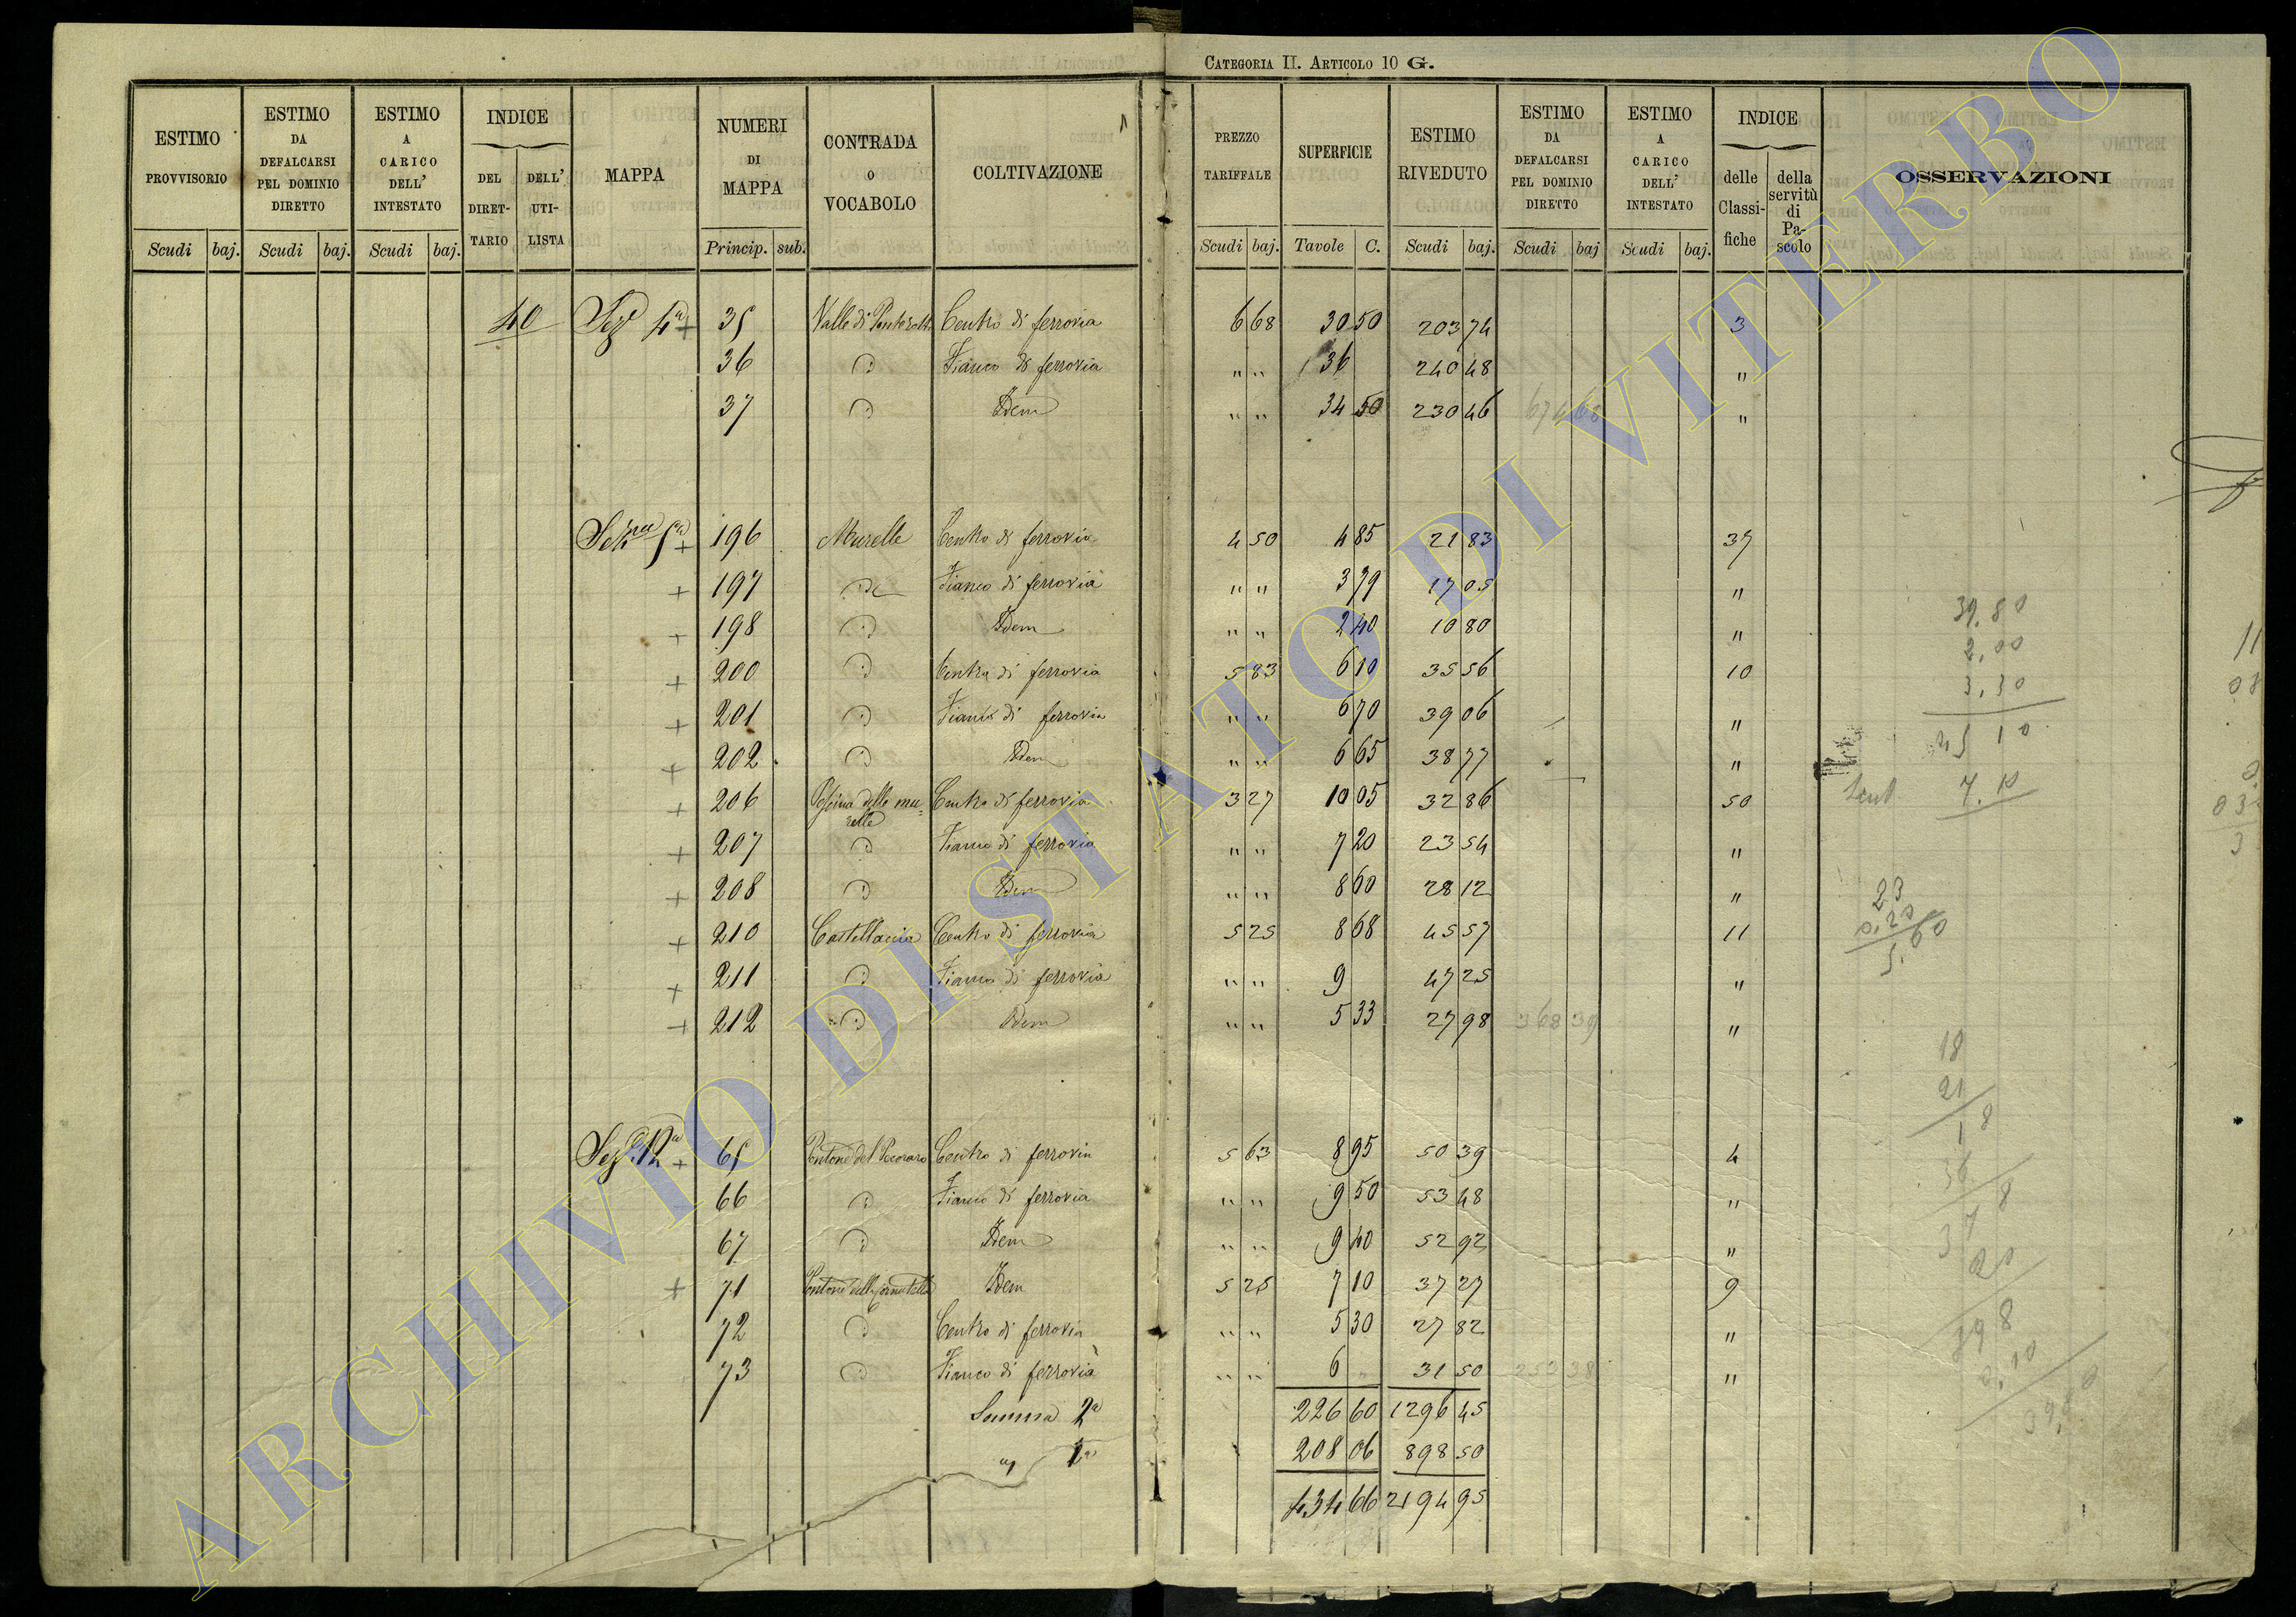 CATEGORIA II. ARTICOLO 10 G.
ESTIMO PROVVISORIO Scudi baj.
ESTIMO DA DEFALCARSI PEL DOMINIO DIRETTO Scudi baj.
ESTIMO A CARICO DELL' INTESTATO Scudi baj.
INDICE DEL DIRET-TARIO DELL' UTI-LISTA
MAPPA
NUMERI DI MAPPA Princip. sub.
CONTRADA O VOCABOLO
COLTIVAZIONE
PREZZO TARIFFALE Scudi baj.
SUPERFICIE Tavole C.
ESTIMO RIVEDUTO Scudi baj.
ESTIMO DA DEFALCARSI PEL DOMINIO DIRETTO Scudi baj
ESTIMO A CARICO DELL' INTESTATO Scudi baj.
INDICE delle Classi-fiche della servitù di Pa-scolo
OSSERVAZIONI
40 Sez 4a + 35 Valle di Centro di ferrovia 6 68 30 50 203 74 3
36 Fianco di ferrovia " " 36 240 48 "
37 Idem " " 34 50 230 46 674 68 "
5a + 196 Murelle Centro di ferrovia 4 50 4 85 21 83 37
+ 197 Fianco di ferrovia " " 3 79 17 05 "
+ 198 Idem " " 2 40 10 80 "
+ 200 Centro di ferrovia 5 83 6 10 35 56 10
+ 201 Fianco di ferrovia " " 6 70 39 06 "
+ 202 Idem " " 6 65 38 77 "
+ 206 delle mu= Centro di ferrovia 3 27 10 05 32 86 50
relle
+ 207 Fianco di ferrovia " " 7 20 23 54 "
+ 208 Idem " " 8 60 28 12 "
+ 210 Castellaccia Centro di ferrovia 5 25 8 68 45 57 11
+ 211 Fianco di ferrovia " " 9 47 25 "
+ 212 Idem " " 5 33 27 98 368 39 "
Sez. 12a + 65 Pontone del Pecoraro Centro di ferrovia 5 63 8 95 50 39 4
66 Fianco di ferrovia " " 9 50 53 48 "
67 Idem " " 9 40 52 92 "
+ 71 Pontone della Idem 5 25 7 10 37 27 9
72 Centro di ferrovia " " 5 30 27 82 "
73 Fianco di ferrovia " " 6 " 31 50 253 38 "
Somma 2a 226 60 1296 45
" 1a 208 06 898 50
434 66 2194 95
39.80
2,00
3,30
45 10
7.10
23
0.20
18
21
ARCHIVIO DI STATO DI VITERBO